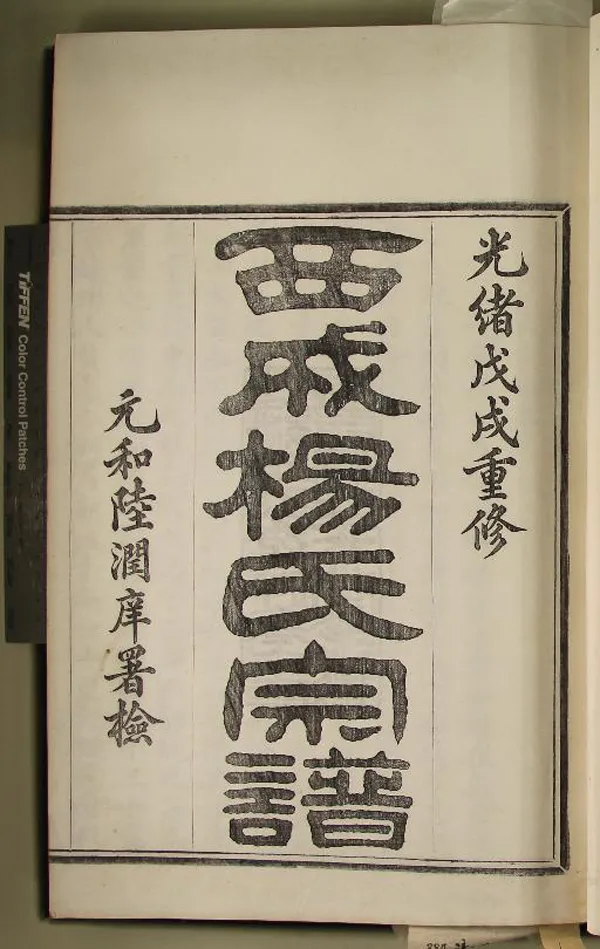 光緒戊戌重修
西成楊氏宗譜
元和陸潤庠署檢
TIFFEN Color Control Patches